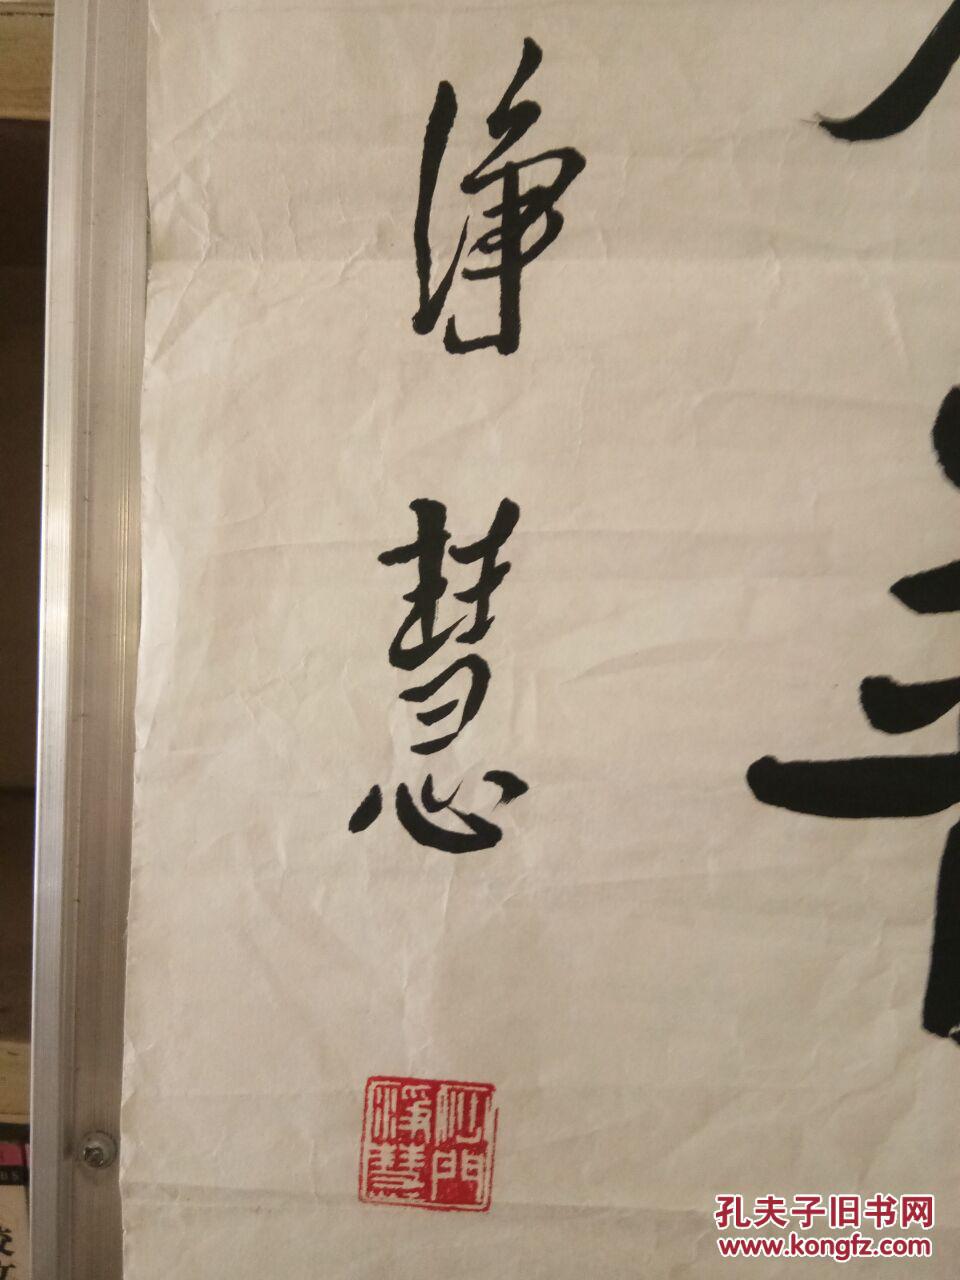 净慧
沙門
净慧
孔夫子旧书网
www.kongfz.com